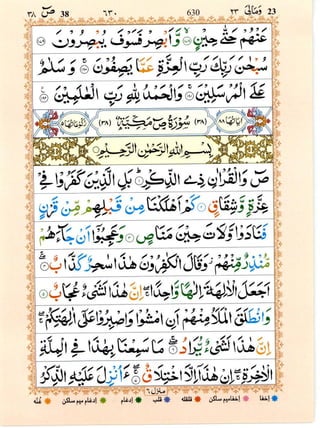 ص 38 ٣٨ ٦٣٠ 630 وَمَالِیَ ٢٣ 23
عَنْهُمْ حَتّٰى حِیْنٍ ۙ وَّاَبْصِرْ فَسَوْفَ یُبْصِرُوْنَ
سُبْحٰنَ رَبِّكَ رَبِّ الْعِزَّةِ عَمَّا یَصِفُوْنَ ۚ وَسَلٰمٌ
عَلَى الْمُرْسَلِیْنَ ۚ وَالْحَمْدُ لِلّٰهِ رَبِّ الْعٰلَمِیْنَ
اٰیَاتُهَا ٨٨ (٣٨) سُوْرَةُ صٓ مَكِّیَّةٌ (٣٨) رُكُوْعَاتُهَا ٥
بِسْمِ اللّٰهِ الرَّحْمٰنِ الرَّحِیْمِ
صٓ وَالْقُرْاٰنِ ذِی الذِّكْرِ ؕ بَلِ الَّذِیْنَ كَفَرُوْا فِیْ
عِزَّةٍ وَّشِقَاقٍ كَمْ اَهْلَكْنَا مِنْ قَبْلِهِمْ مِّنْ قَرْنٍ
فَنَادَوْا وَّلَاتَ حِیْنَ مَنَاصٍ وَعَجِبُوْۤا اَنْ جَآءَهُمْ
مُّنْذِرٌ مِّنْهُمْ ؗ وَقَالَ الْكٰفِرُوْنَ هٰذَا سٰحِرٌ كَذَّابٌ
اَجَعَلَ الْاٰلِهَةَ اِلٰهًا وَّاحِدًا ۖ اِنَّ هٰذَا لَشَیْءٌ عُجَابٌ
وَانْطَلَقَ الْمَلَاُ مِنْهُمْ اَنِ امْشُوْا وَاصْبِرُوْا عَلٰۤى اٰلِهَتِكُمْ ۖ
اِنَّ هٰذَا لَشَیْءٌ یُّرَادُ ۚ مَا سَمِعْنَا بِهٰذَا فِی الْمِلَّةِ
الْاٰخِرَةِ ۖ اِنْ هٰذَاۤ اِلَّا اخْتِلَاقٌ ۚ ءَاُنْزِلَ عَلَیْهِ الذِّكْرُ
منزل ٦
اخفا اخفا میم ساکن قلقله قلب ادغام ادغام میم ساکن غنّه